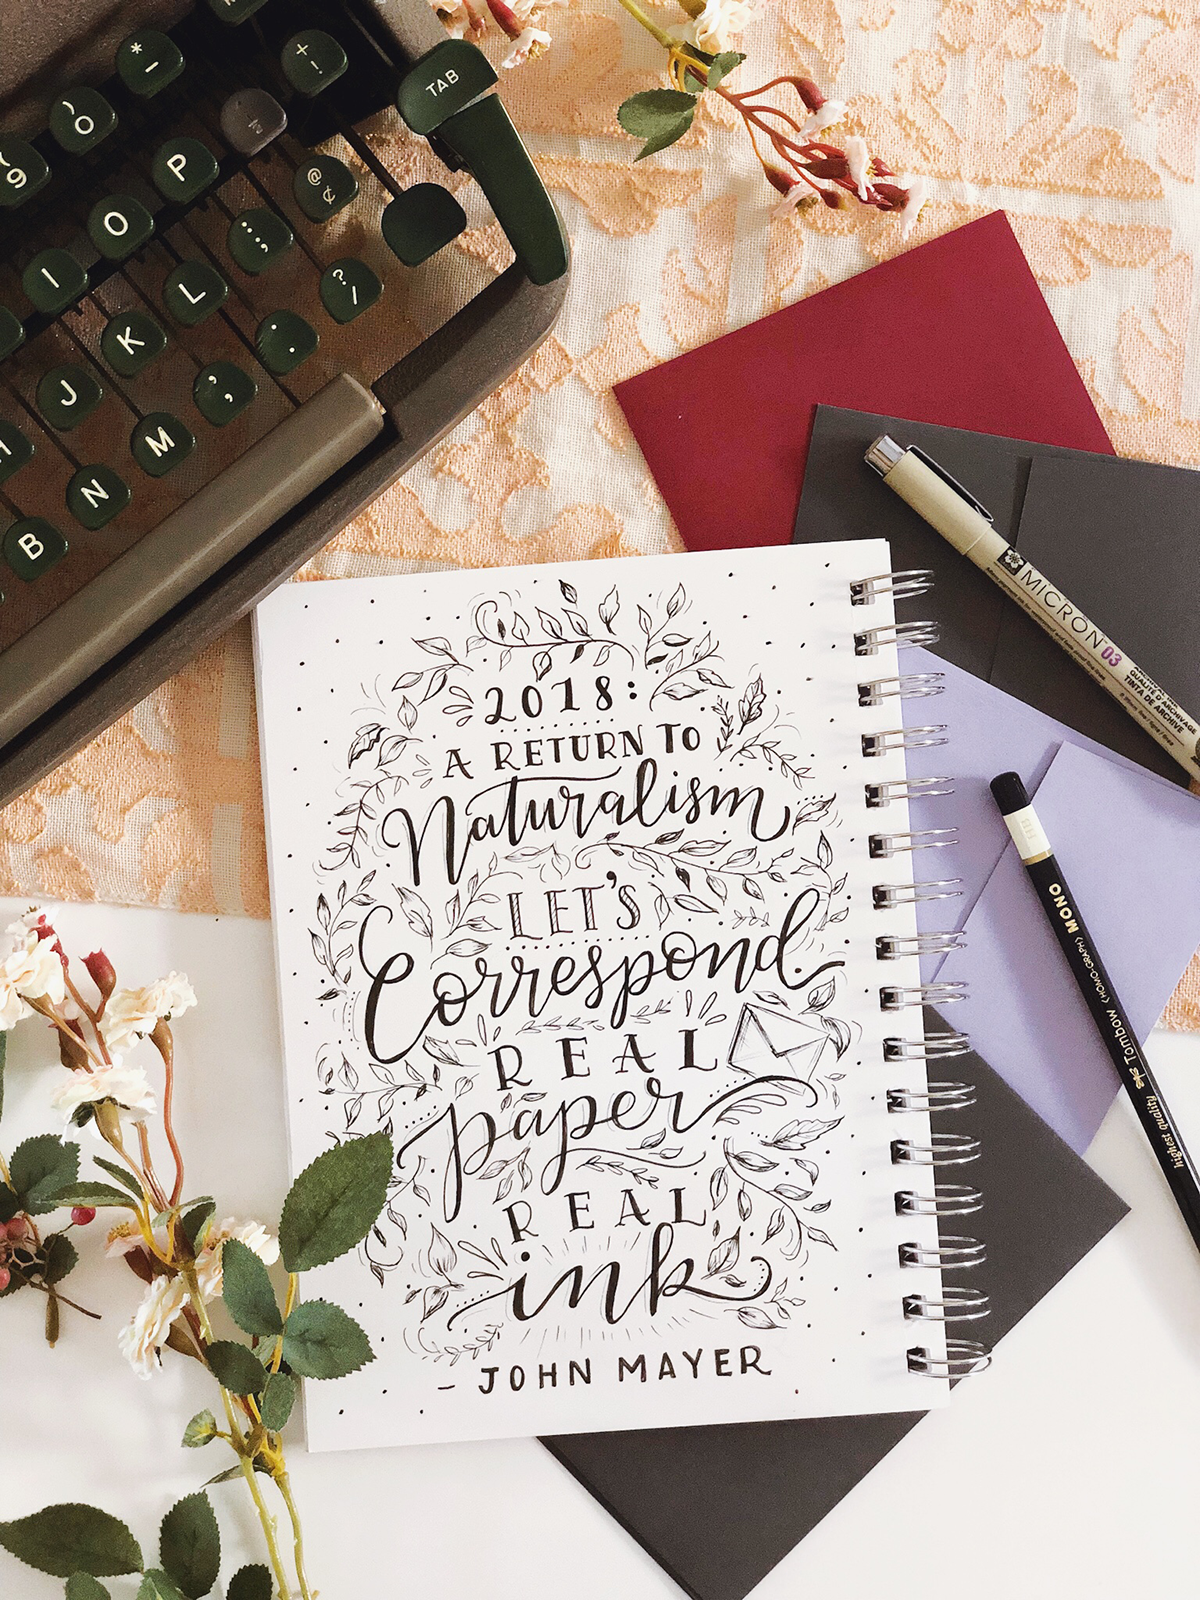 TAB
* -
+ !
) 0
( 9
P
@ ¢
O
: ;
I
L
? /
K
.
J
,
M
N
B
2018:
A RETURN TO
Naturalism
LET'S
Correspond.
REAL
paper
REAL
ink
- JOHN MAYER
MICRON 03
ARCHIVAL
QUALITÉ D'ARCHIVAGE
TINTA DE ARCHIVE
MONO
Tombow <HOMO-GRAPH>
highest quality